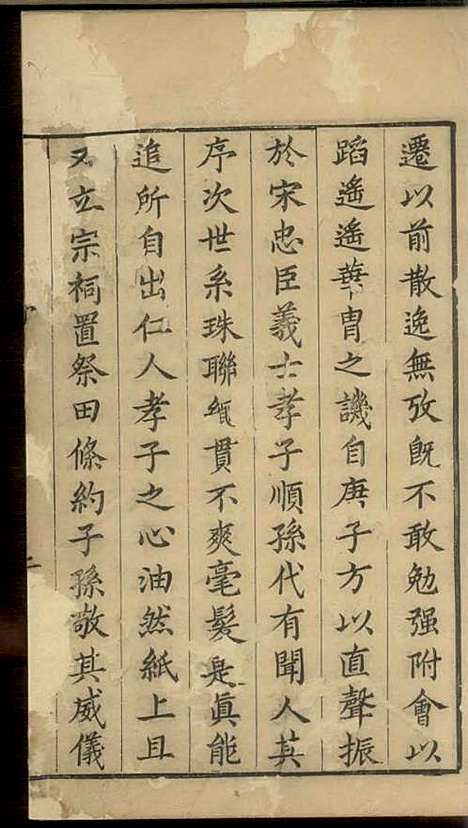 遷以前散逸無攷既不敢勉强附會以
蹈遙遙華冑之譏自庚子方以直聲振
於宋忠臣義士孝子順孫代有聞人其
序次世系珠聯絲貫不爽毫髮是眞能
追所自出仁人孝子之心油然紙上且
又立宗祠置祭田條約子孫敬其威儀
二